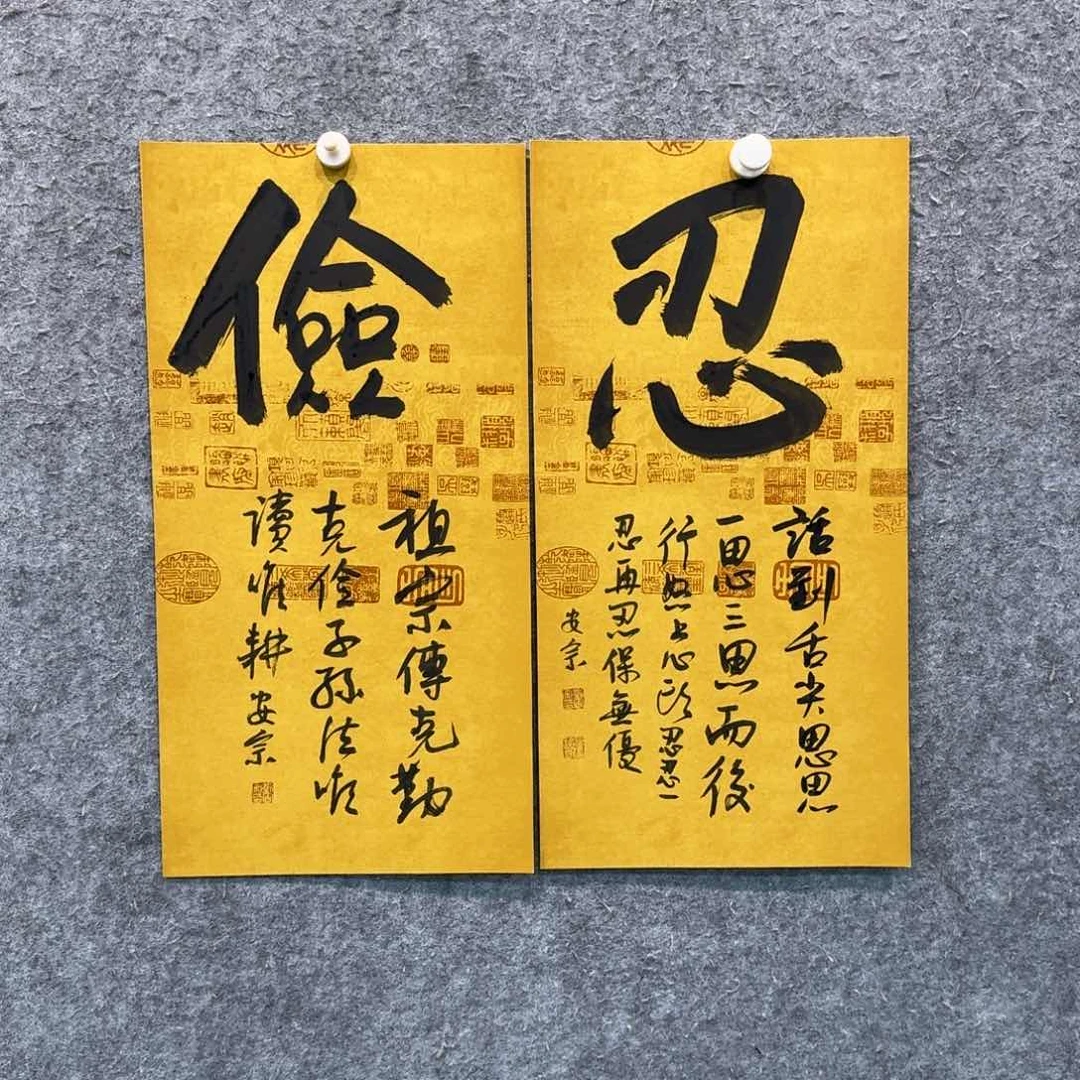 忍
話到舌尖思思
一思三思而後
行怒上心頭忍忍一
忍再忍保無優
安宗
儉
祖宗傳克勤
克儉子孫法唯
讀唯耕 安宗